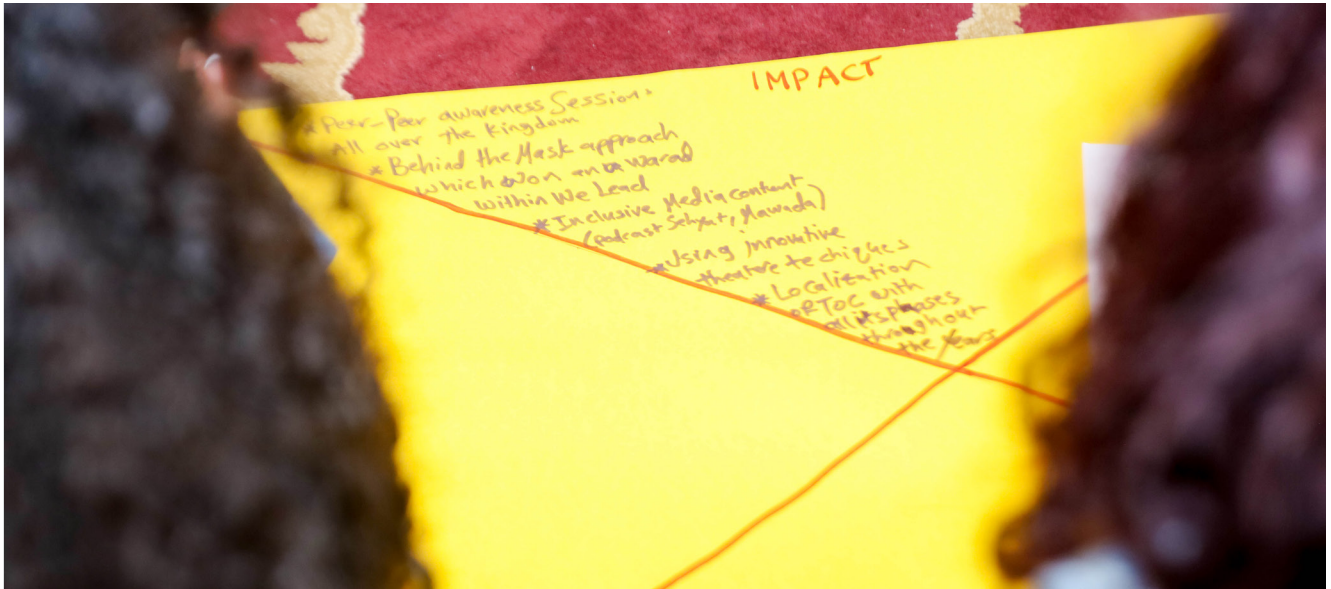 IMPACT
* Peer-Peer awareness Sessions
All over the Kingdom
* Behind the Mask approach
which won an award
within We Lead
* Inclusive Media content
(podcast Sehyat, Mawada)
* Using innovative
theatre techiques
* Localization
oRToC with
all itsphases
throughout
the Years